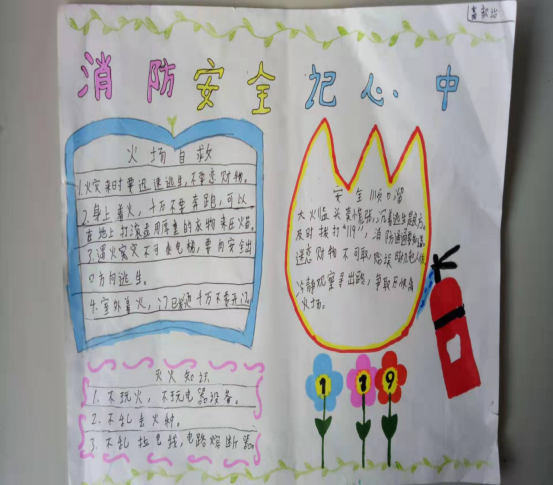 消防安全记心中
火场自救
1.火灾来时要迅速逃生,不要恋财物。
2.身上着火,千万不要奔跑,可以
地上打滚或用厚重的衣物来压火苗。
3.遇火灾不可乘电梯,要向安全出
口方向逃生。
4.室外着火,门已发烫千万不要开门。
安全顺口溜
大火临头莫慌张,沉着逃生
及时拨打"119",消防
迷恋财物不可取,
冷静观察寻出路,争取
火场。
灭火知识
1.不玩火,不玩电器设备。
2.不乱丢火种。
3.不乱拉电线,电路熔断器。
1 1 9